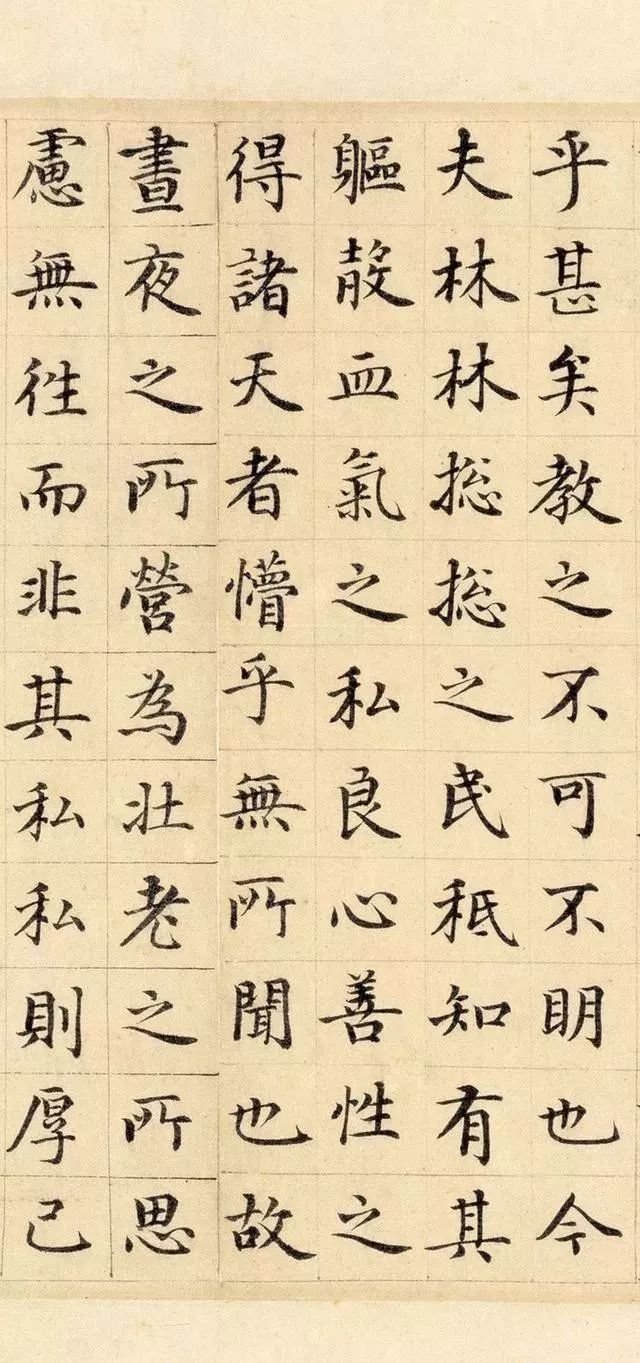 乎甚矣教之不可不明也今
夫林林揔揔之民秖知有其
軀殼血氣之私良心善性之
得諸天者懵乎無所聞也故
晝夜之所營為壯老之所思
慮無往而非其私私則厚己